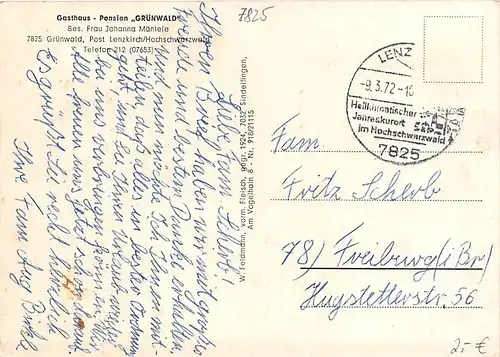 Gasthaus - Pension „GRÜNWALD"
Bes. Frau Johanna Mäntele
7825 Grünwald, Post Lenzkirch/Hochschwarzwald
Telefon 212 (07653)
7825
Liebe Fam. Scherb!
Ihren Brief haben wir mit großer
Freude und bestem Dank erhalten,
und nun möchte ich Ihnen mit-
teilen, daß alles in bester Ordnung
geht und Sie Ihren Urlaub
bei uns verbringen können.
Alle freuen uns jetzt schon darauf
Es grüßt Sie recht herzlich
Ihre Fam. Aug.
W. Feldmann, vorm. Fleisch, gegr. 1924, 7032 Sindelfingen,
Am Vogelhain 8 - Nr. 718/21115
LENZ
-9.3.72-1
Heilklimatischer
Jahreskurort
im Hochschwarzwald
7825
Fam
Fritz Scherb
78) Freiburg (i Br)
Hugstetterstr. 56
2,- €